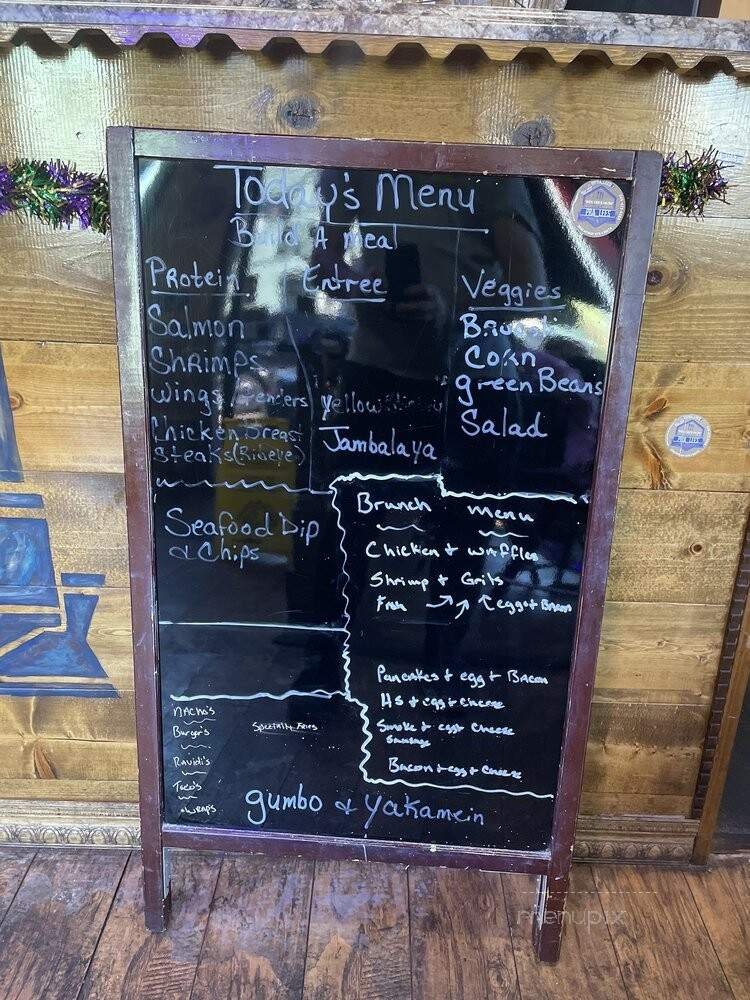 Today's Menu
Build A meal
Protein
Salmon
Shrimps
Wings / Tenders
Chicken Breast
Steaks (Ribeye)
Entree
Yellow
Jambalaya
Veggies
Corn
green Beans
Salad
Seafood Dip
& Chips
Brunch menu
Chicken + waffles
Shrimp + Grits
Fish egg + Bacon
Pancakes + egg + Bacon
HS + egg + cheese
Smoke + egg + cheese
Sausage
Bacon + egg + cheese
Nacho's
Burger's
Specialty Fries
Ravioli's
Taco's
wraps
gumbo & yakamein
menupix